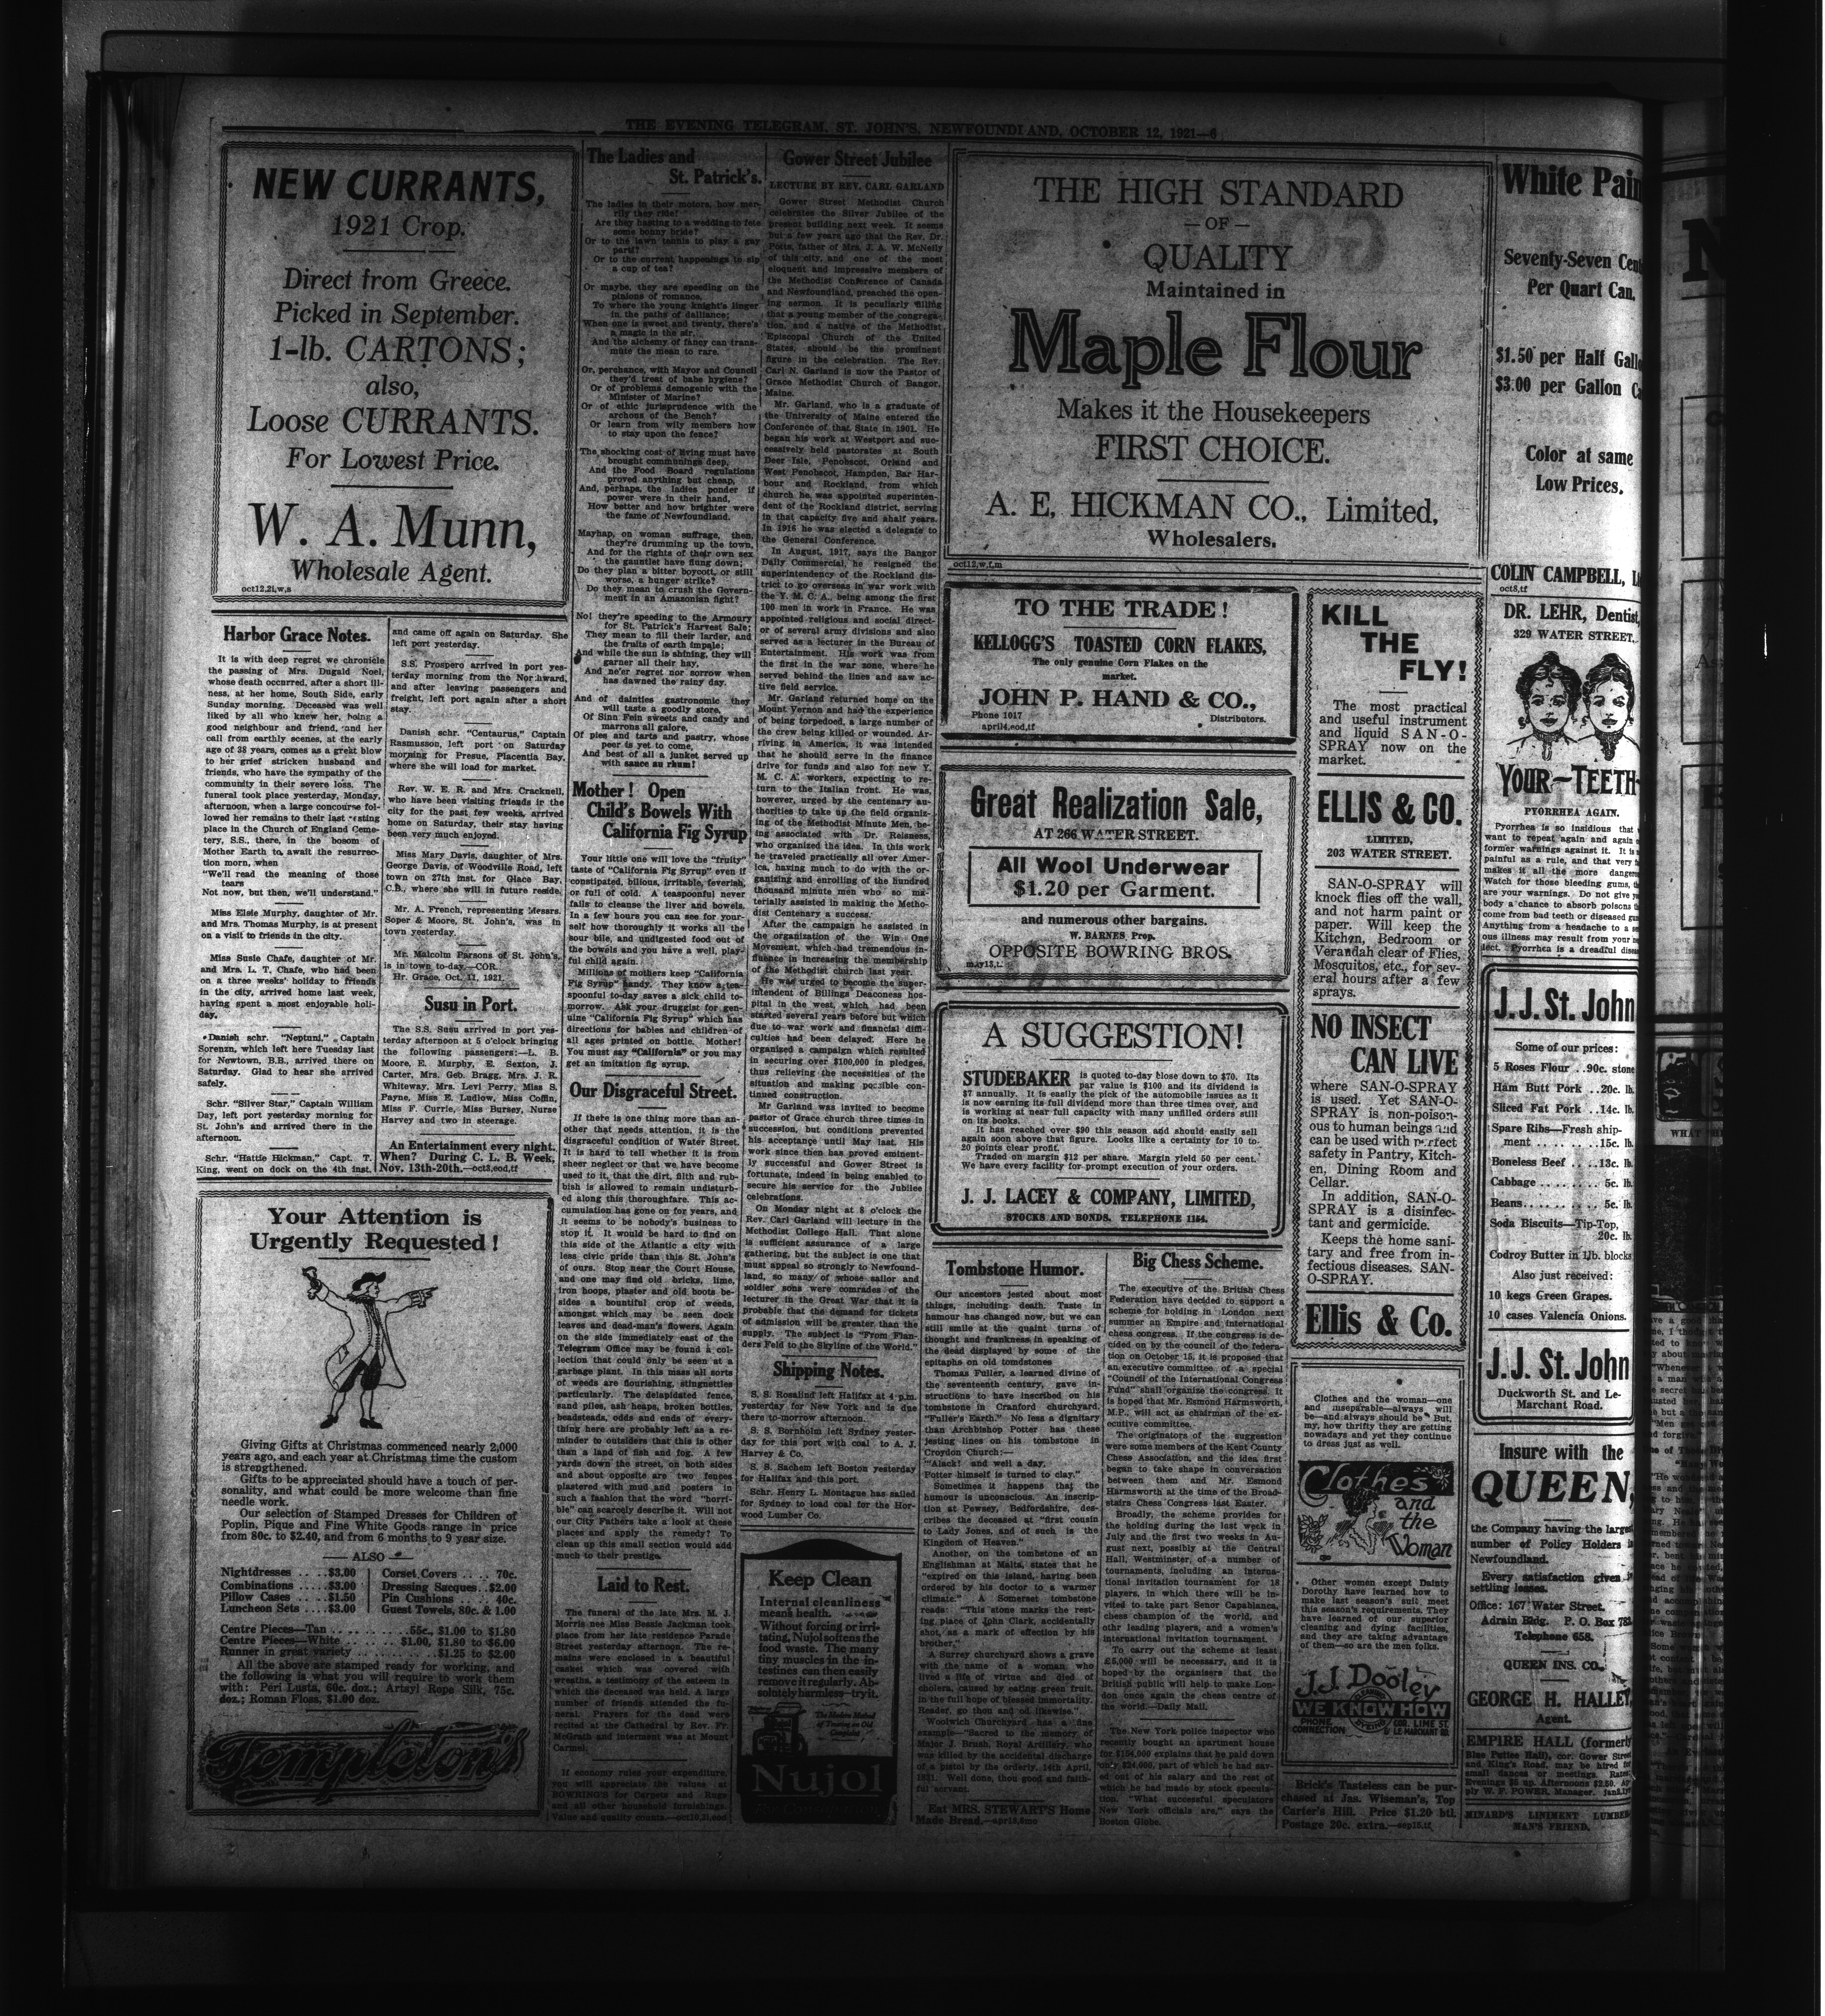 THE EVENING TELEGRAM, ST. JOHN'S, NEWFOUNDLAND, OCTOBER 12, 1921—6
NEW CURRANTS,
1921 Crop.
Direct from Greece.
Picked in September.
1-lb. CARTONS;
also,
Loose CURRANTS.
For Lowest Price.
W. A. Munn,
Wholesale Agent.
oct12,2i,w,s
Harbor Grace Notes.
It is with deep regret we chronicle
the passing of Mrs. Dugald Noel,
whose death occurred, after a short ill-
ness, at her home, South Side, early
Sunday morning. Deceased was well
liked by all who knew her, being a
good neighbour and friend, and her
call from earthly scenes, at the early
age of 38 years, comes as a great blow
to her grief stricken husband and
friends, who have the sympathy of the
community in their severe loss. The
funeral took place yesterday, Monday,
afternoon, when a large concourse fol-
lowed her remains to their last resting
place in the Church of England Ceme-
tery, S.S., there, in the bosom of
Mother Earth to await the resurrec-
tion morn, when
"We'll read the meaning of those
tears
Not now, but then, we'll understand."
Miss Elsie Murphy, daughter of Mr.
and Mrs. Thomas Murphy, is at present
on a visit to friends in the city.
Miss Susie Chafe, daughter of Mr.
and Mrs. L. T. Chafe, who had been
on a three weeks' holiday to friends
in the city, arrived home last week,
having spent a most enjoyable holi-
day.
Danish schr. "Neptun," Captain
Sorenzn, which left here Tuesday last
for Newtown, B.B., arrived there on
Saturday. Glad to hear she arrived
safely.
Schr. "Silver Star," Captain William
Day, left port yesterday morning for
St. John's and arrived there in the
afternoon.
Schr. "Hattie Hickman," Capt. T.
King, went on dock on the 4th inst.
and came off again on Saturday. She
left port yesterday.
S.S. Prospero arrived in port yes-
terday morning from the Northward,
and after leaving passengers and
freight, left port again after a short
stay.
Danish schr. "Centaurus," Captain
Rasmusson, left port on Saturday
morning for Presue, Placentia Bay,
where she will load for market.
Rev. W. E. R. and Mrs. Cracknell,
who have been visiting friends in the
city for the past few weeks, arrived
home on Saturday, their stay having
been very much enjoyed.
Miss Mary Davis, daughter of Mrs.
George Davis, of Woodville Road, left
town on 27th inst. for Glace Bay,
C.B., where she will in future reside.
Mr. A. French, representing Messrs.
Soper & Moore, St. John's, was in
town yesterday.
Mr. Malcolm Parsons of St. John's,
is in town to-day.—COR.
Hr. Grace, Oct. 11, 1921.
Susu in Port.
The S.S. Susu arrived in port yes-
terday afternoon at 5 o'clock bringing
the following passengers:—L. B.
Moore, E. Murphy, E. Sexton, J.
Carter, Mrs. Geb. Bragg, Mrs. J. R.
Whiteway, Mrs. Levi Perry, Miss S.
Payne, Miss E. Ludlow, Miss Coffin,
Miss F. Currie, Miss Bursey, Nurse
Harvey and two in steerage.
An Entertainment every night.
When? During C. L. B. Week,
Nov. 13th-20th.—oct3,eod,tf
Your Attention is
Urgently Requested!
Giving Gifts at Christmas commenced nearly 2,000
years ago, and each year at Christmas time the custom
is strengthened.
Gifts to be appreciated should have a touch of per-
sonality, and what could be more welcome than fine
needle work.
Our selection of Stamped Dresses for Children of
Poplin, Pique and Fine White Goods range in price
from 80c. to $2.40, and from 6 months to 9 year size.
ALSO
Nightdresses .. ..$3.00
Combinations .. ..$3.00
Pillow Cases .. ..$1.50
Luncheon Sets ....$3.00
Corset Covers .. .. 70c.
Dressing Sacques..$2.00
Pin Cushions .. .. 40c.
Guest Towels, 80c. & 1.00
Centre Pieces—Tan .. .. .. .. ..55c., $1.00 to $1.80
Centre Pieces—White .. .. .. $1.00, $1.80 to $6.00
Runner in great variety .. .. .. .. $1.25 to $2.00
All the above are stamped ready for working, and
the following is what you will require to work them
with: Peri Lusta, 60c. doz.; Artsyl Rope Silk, 75c.
doz.; Roman Floss, $1.00 doz.
Templeton's
The Ladies and
St. Patrick's.
The ladies in their motors, how mer-
rily they ride!
Are they hasting to a wedding to fete
some bonny bride?
Or to the lawn tennis to play a gay
parti?
Or to the current happenings to sip
a cup of tea?
Or maybe, they are speeding on the
pinions of romance,
To where the young knight's linger
in the paths of dalliance;
When one is sweet and twenty, there's
a magic in the air,
And the alchemy of fancy can trans-
mute the mean to rare.
Or, perchance, with Mayor and Council
they'd treat of babe hygiene?
Or of problems demogenic with the
Minister of Marine?
Or of ethic jurisprudence with the
archons of the Bench?
Or learn from wily members how
to stay upon the fence?
The shocking cost of living must have
brought communings deep,
And the Food Board regulations
proved anything but cheap,
And, perhaps, the ladies ponder if
power were in their hand,
How better and how brighter were
the fame of Newfoundland.
Mayhap, on woman suffrage, then,
they're drumming up the town,
And for the rights of their own sex
the gauntlet have flung down;
Do they plan a bitter boycott, or still
worse, a hunger strike?
Do they mean to crush the Govern-
ment in an Amazonian fight?
No! they're speeding to the Armoury
for St. Patrick's Harvest Sale;
They mean to fill their larder, and
the fruits of earth impale;
And while the sun is shining, they will
garner all their hay,
And ne'er regret nor sorrow when
has dawned the rainy day.
And of dainties gastronomic they
will taste a goodly store,
Of Sinn Fein sweets and candy and
marrons all galore,
Of pies and tarts and pastry, whose
peer is yet to come,
And best of all a junket served up
with sauce au rhum!
Mother! Open
Child's Bowels With
California Fig Syrup
Your little one will love the "fruity"
taste of "California Fig Syrup" even if
constipated, bilious, irritable, feverish,
or full of cold. A teaspoonful never
fails to cleanse the liver and bowels.
In a few hours you can see for your-
self how thoroughly it works all the
sour bile, and undigested food out of
the bowels and you have a well, play-
ful child again.
Millions of mothers keep "California
Fig Syrup" handy. They know a tea-
spoonful to-day saves a sick child to-
morrow. Ask your druggist for gen-
uine "California Fig Syrup" which has
directions for babies and children of
all ages printed on bottle. Mother!
You must say "California" or you may
get an imitation fig syrup.
Our Disgraceful Street.
If there is one thing more than an-
other that needs attention, it is the
disgraceful condition of Water Street.
It is hard to tell whether it is from
sheer neglect or that we have become
used to it, that the dirt, filth and rub-
bish is allowed to remain undisturb-
ed along this thoroughfare. This ac-
cumulation has gone on for years, and
it seems to be nobody's business to
stop it. It would be hard to find on
this side of the Atlantic a city with
less civic pride than this St. John's
of ours. Stop near the Court House,
and one may find old bricks, lime,
iron hoops, plaster and old boots be-
sides a bountiful crop of weeds,
amongst which may be seen dock
leaves and dead-man's flowers. Again
on the side immediately east of the
Telegram Office may be found a col-
lection that could only be seen at a
garbage plant. In this mass all sorts
of weeds are flourishing, stingnettles
particularly. The delapidated fence,
sand piles, ash heaps, broken bottles,
beadsteads, odds and ends of every-
thing here are probably left as a re-
minder to outsiders that this is other
than a land of fish and fog. A few
yards down the street, on both sides
and about opposite are two fences
plastered with mud and posters in
such a fashion that the word "horri-
ble" can scarcely describe it. Will not
our City Fathers take a look at these
places and apply the remedy? To
clean up this small section would add
much to their prestige.
Laid to Rest.
The funeral of the late Mrs. M. J.
Morris nee Miss Bessie Jackman took
place from her late residence Parade
Street yesterday afternoon. The re-
mains were enclosed in a beautiful
casket which was covered with
wreaths, a testimony of the esteem in
which the deceased was held. A large
number of friends attended the fu-
neral. Prayers for the dead were
recited at the Cathedral by Rev. Fr.
McGrath and interment was at Mount
Carmel.
If economy rules your expenditure,
you will appreciate the values at
BOWRING'S for Carpets and Rugs
and all other household furnishings.
Value and quality counts.—oct10,3i,eod
Gower Street Jubilee
LECTURE BY REV. CARL GARLAND
Gower Street Methodist Church
celebrates the Silver Jubilee of the
present building next week. It seems
but a few years ago that the Rev. Dr.
Potts, father of Mrs. J. A. W. McNeily
of this city, and one of the most
eloquent and impressive members of
the Methodist Conference of Canada
and Newfoundland, preached the open-
ing sermon. It is peculiarly fitting
that a young member of the congrega-
tion, and a native of the Methodist
Episcopal Church of the United
States, should be the prominent
figure in the celebration. The Rev.
Carl N. Garland is now the Pastor of
Grace Methodist Church of Bangor,
Maine.
Mr. Garland, who is a graduate of
the University of Maine entered the
Conference of that State in 1901. He
began his work at Westport and suc-
cessively held pastorates at South
Deer Isle, Penobscot, Orland and
West Penobscot, Hampden, Bar Har-
bour and Rockland, from which
church he was appointed superinten-
dent of the Rockland district, serving
in that capacity five and ahalf years.
In 1916 he was elected a delegate to
the General Conference.
In August, 1917, says the Bangor
Daily Commercial, he resigned the
superintendency of the Rockland dis-
trict to go overseas in war work with
the Y. M. C. A., being among the first
100 men in work in France. He was
appointed religious and social direct-
or of several army divisions and also
served as a lecturer in the Bureau of
Entertainment. His work was from
the first in the war zone, where he
served behind the lines and saw ac-
tive field service.
Mr. Garland returned home on the
Mount Vernon and had the experience
of being torpedoed, a large number of
the crew being killed or wounded. Ar-
riving in America, it was intended
that he should serve in the finance
drive for funds and also for new Y.
M. C. A. workers, expecting to re-
turn to the Italian front. He was,
however, urged by the centenary au-
thorities to take up the field organiz-
ing of the Methodist Minute Men, be-
ing associated with Dr. Reisness,
who organized the idea. In this work
he traveled practically all over Amer-
ica, having much to do with the or-
ganizing and enrolling of the hundred
thousand minute men who so ma-
terially assisted in making the Metho-
dist Centenary a success.
After the campaign he assisted in
the organization of the Win One
Movement, which had tremendous in-
fluence in increasing the membership
of the Methodist church last year.
He was urged to become the super-
intendent of Billings Deaconess hos-
pital in the west, which had been
started several years before but which
due to war work and financial diffi-
culties had been delayed. Here he
organised a campaign which resulted
in securing over $100,000 in pledges,
thus relieving the necessities of the
situation and making possible con-
tinued construction.
Mr Garland was invited to become
pastor of Grace church three times in
succession, but conditions prevented
his acceptance until May last. His
work since then has proved eminent-
ly successful and Gower Street is
fortunate, indeed in being enabled to
secure his service for the Jubilee
celebrations.
On Monday night at 8 o'clock the
Rev. Carl Garland will lecture in the
Methodist College Hall. That alone
is sufficient assurance of a large
gathering, but the subject is one that
must appeal so strongly to Newfound-
land, so many of whose sailor and
soldier sons were comrades of the
lecturer in the Great War that it is
probable that the demand for tickets
of admission will be greater than the
supply. The subject is "From Flan-
ders Feld to the Skyline of the World."
Shipping Notes.
S. S. Rosalind left Halifax at 4 p.m.
yesterday for New York and is due
there to-morrow afternoon.
S. S. Bornholm left Sydney yester-
day for this port with coal to A. J.
Harvey & Co.
S. S. Sachem left Boston yesterday
for Halifax and this port.
Schr. Henry L. Montague has sailed
for Sydney to load coal for the Hor-
wood Lumber Co.
Keep Clean
Internal cleanliness
means health.
Without forcing or irri-
tating, Nujol softens the
food waste. The many
tiny muscles in the in-
testines can then easily
remove it regularly. Ab-
solutely harmless—try it.
The Modern Method
of Treating an Old
Complaint
Nujol
For Constipation
THE HIGH STANDARD
—OF—
QUALITY
Maintained in
Maple Flour
Makes it the Housekeepers
FIRST CHOICE.
A. E. HICKMAN CO., Limited,
Wholesalers.
oct12,w,f,m
TO THE TRADE!
KELLOGG'S TOASTED CORN FLAKES,
The only genuine Corn Flakes on the
market.
JOHN P. HAND & CO.,
Phone 1017
Distributors.
april4,eod,tf
Great Realization Sale,
AT 266 WATER STREET.
All Wool Underwear
$1.20 per Garment.
and numerous other bargains.
W. BARNES Prop.
OPPOSITE BOWRING BROS.
A SUGGESTION!
STUDEBAKER is quoted to-day blose down to $70. Its
par value is $100 and its dividend is
$7 annually. It is easily the pick of the automobile issues as it
is now earning its full dividend more than three times over, and
is working at near full capacity with many unfilled orders still
on its books.
It has reached over $90 this season and should easily sell
again soon above that figure. Looks like a certainty for 10 to-
20 points clear profit.
Traded on margin $12 per share. Margin yield 50 per cent.
We have every facility for prompt execution of your orders.
J. J. LACEY & COMPANY, LIMITED,
STOCKS AND BONDS. TELEPHONE 1154.
Tombstone Humor.
Our ancestors jested about most
things, including death. Taste in
humour has changed now, but we can
still smile at the quaint turns of
thought and frankness in speaking of
the dead displayed by some of the
epitaphs on old tomdstones
Thomas Fuller, a learned divine of
the seventeenth century, gave in-
structions to have inscribed on his
tombstone in Cranford churchyard,
"Fuller's Earth." No less a dignitary
than Archbishop Potter has these
jesting lines on his tombstone in
Croydon Church:—
"Alack! and well a day.
Potter himself is turned to clay."
Sometimes it happens that the
humour is unconscious. An inscrip-
tion at Pewsey, Bedfordshire, des-
cribes the deceased at "first cousin
to Lady Jones, and of such is the
Kingdom of Heaven."
Another, on the tombstone of an
Englishman at Malta, states that he
"expired on this island, having been
ordered by his doctor to a warmer
climate." A Somerset tombstone
reads: "This stone marks the rest-
ing place of John Clark, accidentally
shot, as a mark of effection by his
brother."
A Surrey churchyard shows a grave
with the name of a woman who
lived a life of virtue and died of
cholera, caused by eating green fruit,
in the full hope of blessed immortality.
Reader, go thou and od likewise."
Woolwich Churchyard has a fine
example—"Sacred to the memory of
Major J. Brush, Royal Artillery, who
was killed by the accidental discharge
of a pistol by the orderly, 14th April,
1831. Well done, thou good and faith-
ful servant.
Eat MRS. STEWART'S Home
Made Bread.—apr18,6mo
Big Chess Scheme.
The executive of the British Chess
Federation have decided to support a
scheme for holding in London next
summer an Empire and international
chess congress. If the congress is de-
cided on by the council of the federa-
tion on October 15, it is proposed that
an executive committee of a special
"Council of the International Congress
Fund" shall organize the congress. It
is hoped that Mr. Esmond Harmsworth,
M.P., will act as chairman of the ex-
ecutive committee.
The originators of the suggestion
were some members of the Kent County
Chess Association, and the idea first
began to take shape in conversation
between them and Mr. Esmond
Harmsworth at the time of the Broad-
stairs Chess Congress last Easter.
Broadly, the scheme provides for
the holding during the last week in
July and the first two weeks in Au-
gust next, possibly at the Central
Hall, Westminster, of a number of
tournaments, including an interna-
tional invitation tournament for 18
players, in which there will be in-
vited to take part Senor Capablanca,
chess champion of the world, and
othr leading players, and a women's
international invitation tournament.
To carry out the scheme at least
£5,000 will be necessary, and it is
hoped by the organisers that the
British public will help to make Lon-
don once again the chess centre of
the world.—Daily Mail.
The New York police inspector who
recently bought an apartment house
for $154,000 explains that he paid down
only $24,000, part of which he had sav-
ed out of his salary and the rest of
which he had made by stock specula-
tion. "What successful speculators
New York officials are," says the
Boston Globe.
KILL
THE
FLY!
The most practical
and useful instrument
and liquid SAN-O-
SPRAY now on the
market.
ELLIS & CO.
LIMITED,
203 WATER STREET.
SAN-O-SPRAY will
knock flies off the wall,
and not harm paint or
paper. Will keep the
Kitchen, Bedroom or
Verandah clear of Flies,
Mosquitos, etc., for sev-
eral hours after a few
sprays.
NO INSECT
CAN LIVE
where SAN-O-SPRAY
is used. Yet SAN-O-
SPRAY is non-poison-
ous to human beings and
can be used with perfect
safety in Pantry, Kitch-
en, Dining Room and
Cellar.
In addition, SAN-O-
SPRAY is a disinfec-
tant and germicide.
Keeps the home sani-
tary and free from in-
fectious diseases. SAN-
O-SPRAY.
Ellis & Co.
Clothes and the woman—one
and inseparable—always will
be—and always should be. But,
my, how thrifty they are getting
nowadays and yet they continue
to dress just as well.
Clothes
and
the
Woman
Other women except Dainty
Dorothy have learned how to
make last season's suit meet
this season's requirements. They
have learned of our superior
cleaning and dyeing facilities,
and they are taking advantage
of them—so are the men folks.
J.J. Dooley
WE KNOW HOW
PHONE
CONNECTION
CLEANING
DYEING
COR. LIME ST.
& LE MARCHANT RD.
Brick's Tasteless can be pur-
chased at Jas. Wiseman's, Top
Carter's Hill. Price $1.20 btl.
Postage 20c. extra.—sep15,tf
White Pain
Seventy-Seven Cent
Per Quart Can.
$1.50 per Half Gallo
$3.00 per Gallon Ca
Color at same
Low Prices.
COLIN CAMPBELL, L
oct8,tf
DR. LEHR, Dentist,
329 WATER STREET.
YOUR—TEETH
PYORRHEA AGAIN.
Pyorrhea is so insidious that
want to repeat again and again
former warnings against it. It is
painful as a rule, and that very
makes it all the more dangero
Watch for those bleeding gums,
are your warnings. Do not give
body a chance to absorb poisons
come from bad teeth or diseased gu
Anything from a headache to a
ous illness may result from your
lect. Pyorrhea is a dreadful disea
J. J. St. John
Some of our prices:
5 Roses Flour ..90c. stone
Ham Butt Pork ..20c. lb.
Sliced Fat Pork ..14c. lb.
Spare Ribs—Fresh ship-
ment .. .. .. ..15c. lb.
Boneless Beef .. ..13c. lb.
Cabbage .. .. .. .. 5c. lb.
Beans.. .. .. .. .. 5c. lb.
Soda Biscuits—Tip-Top,
20c. lb.
Codroy Butter in 1lb. blocks
Also just received:
10 kegs Green Grapes.
10 cases Valencia Onions.
J. J. St. John
Duckworth St. and Le-
Marchant Road.
Insure with the
QUEEN,
the Company having the large
number of Policy Holders in
Newfoundland.
Every satisfaction given in
settling losses.
Office: 167 Water Street,
Adrain Bldg. P. O. Box 782
Telephone 658.
QUEEN INS. CO.,
GEORGE H. HALLEY
Agent.
EMPIRE HALL (formerly
Blue Puttee Hall), cor. Gower Street
and King's Road, may be hired for
small dances or meetings. Rates:
Evenings $5 up. Afternoons $2.50. Ap
ply W. F. POWER, Manager.
MINARD'S LINIMENT LUMBER
MAN'S FRIEND.